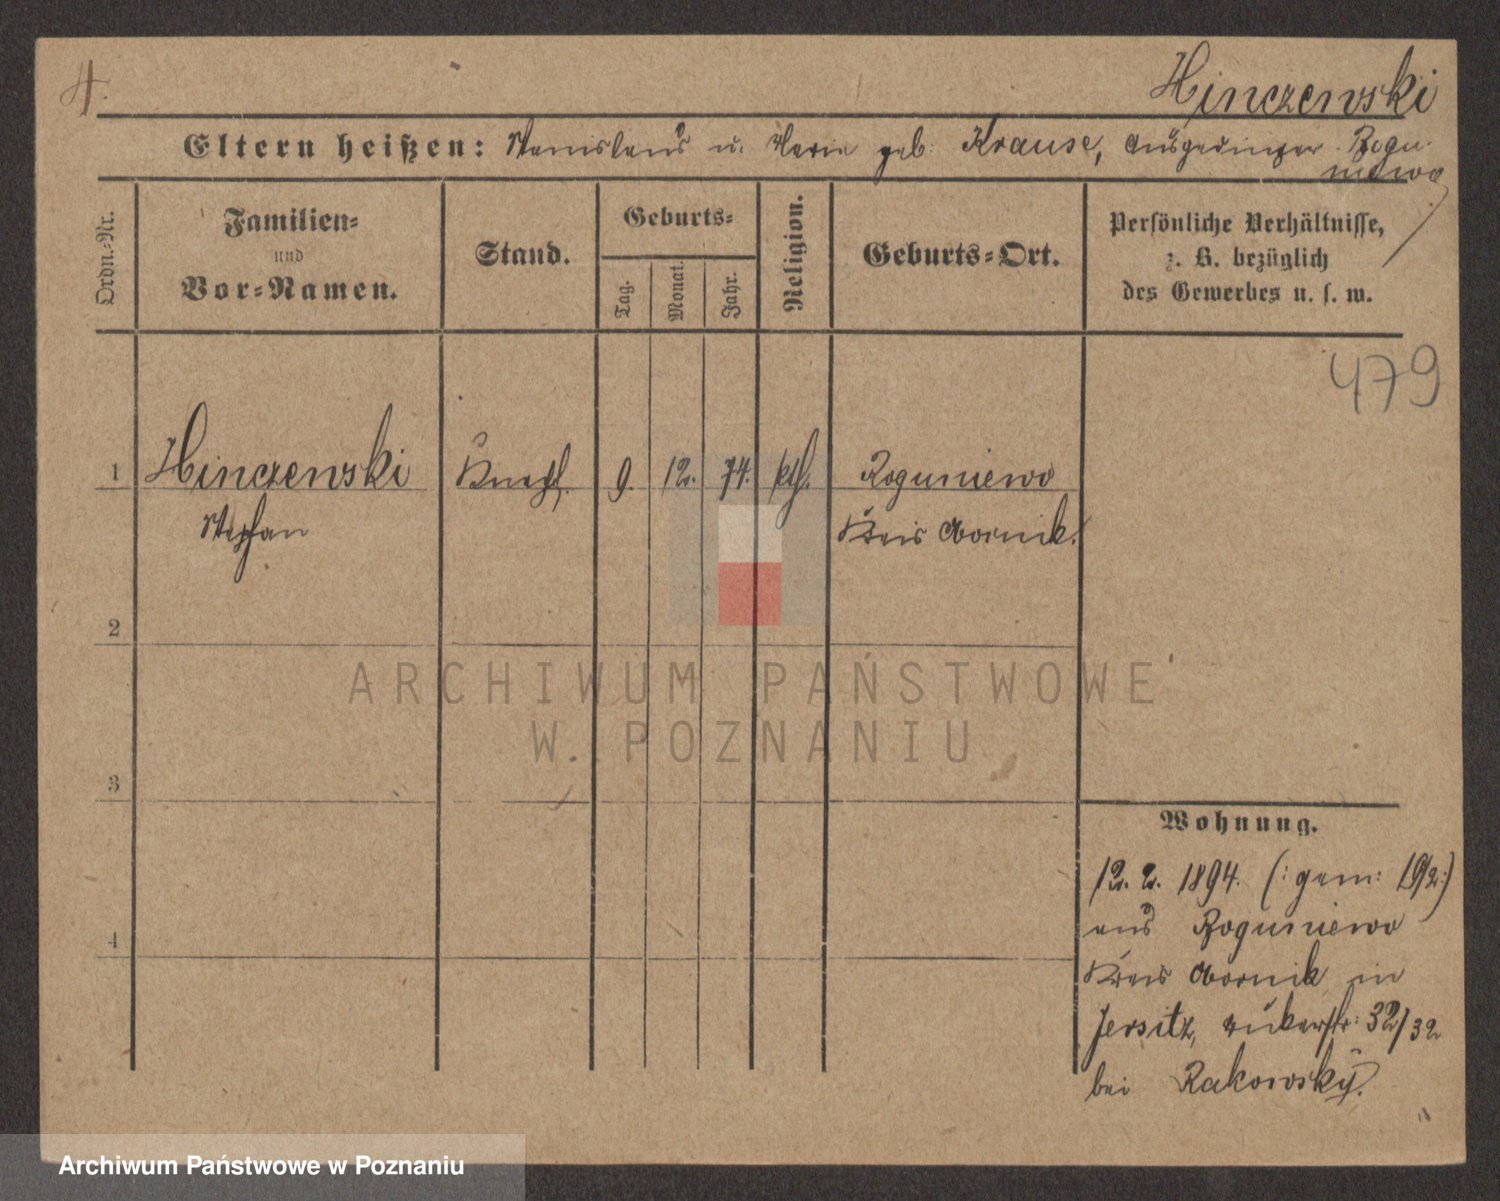 4.
Hinczewski
Eltern heißen: Stanislaus u. Maria geb: Krause, Ausgedinger Rogu-
niewo
Ordn.-Nr.
Familien-
und
Vor-Namen.
Stand.
Geburts-
Tag.
Monat.
Jahr.
Religion.
Geburts-Ort.
Persönliche Verhältnisse,
z. B. bezüglich
des Gewerbes u. s. w.
479
1 Hinczewski Knecht. 9. 12. 74. kth. Roguniewo
Stephan Kreis Obornik.
2
ARCHIWUM PAŃSTWOWE
W POZNANIU
3
Wohnung.
12. 2. 1894. (: gem: 19/2:)
aus Roguniewo
4
Kreis Obornik in
Jersitz, 32/32
bei Rakowsky.
Archiwum Państwowe w Poznaniu